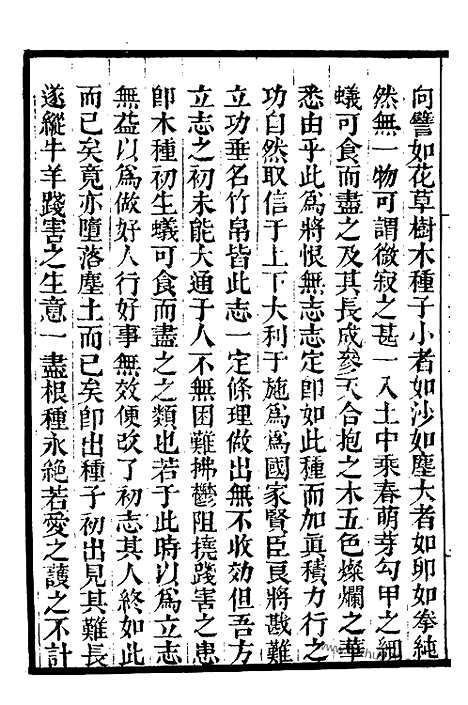 向譬如花草樹木種子小者如沙如塵大者如卵如拳純
然無一物可謂微寂之甚一入土中乘春萌芽勾甲之細
蟻可食而盡之及其長成參天合抱之木五色燦爛之華
悉由乎此為將恨無志志定卽如此種而加眞積力行之
功自然取信于上下大利于施為為國家賢臣良將戡難
立功垂名竹帛皆此志一定條理做出無不收效但吾方
立志之初未能大通于人不無困難拂鬱阻撓踐害之患
卽木種初生蟻可食而盡之之類也若于此時以為立志
無益以為做好人行好事無效便改了初志其人終如此
而已矣竟亦墮落塵土而已矣卽出種子初出見其難長
遂縱牛羊踐害之生意一盡根種永絕若愛之護之不計